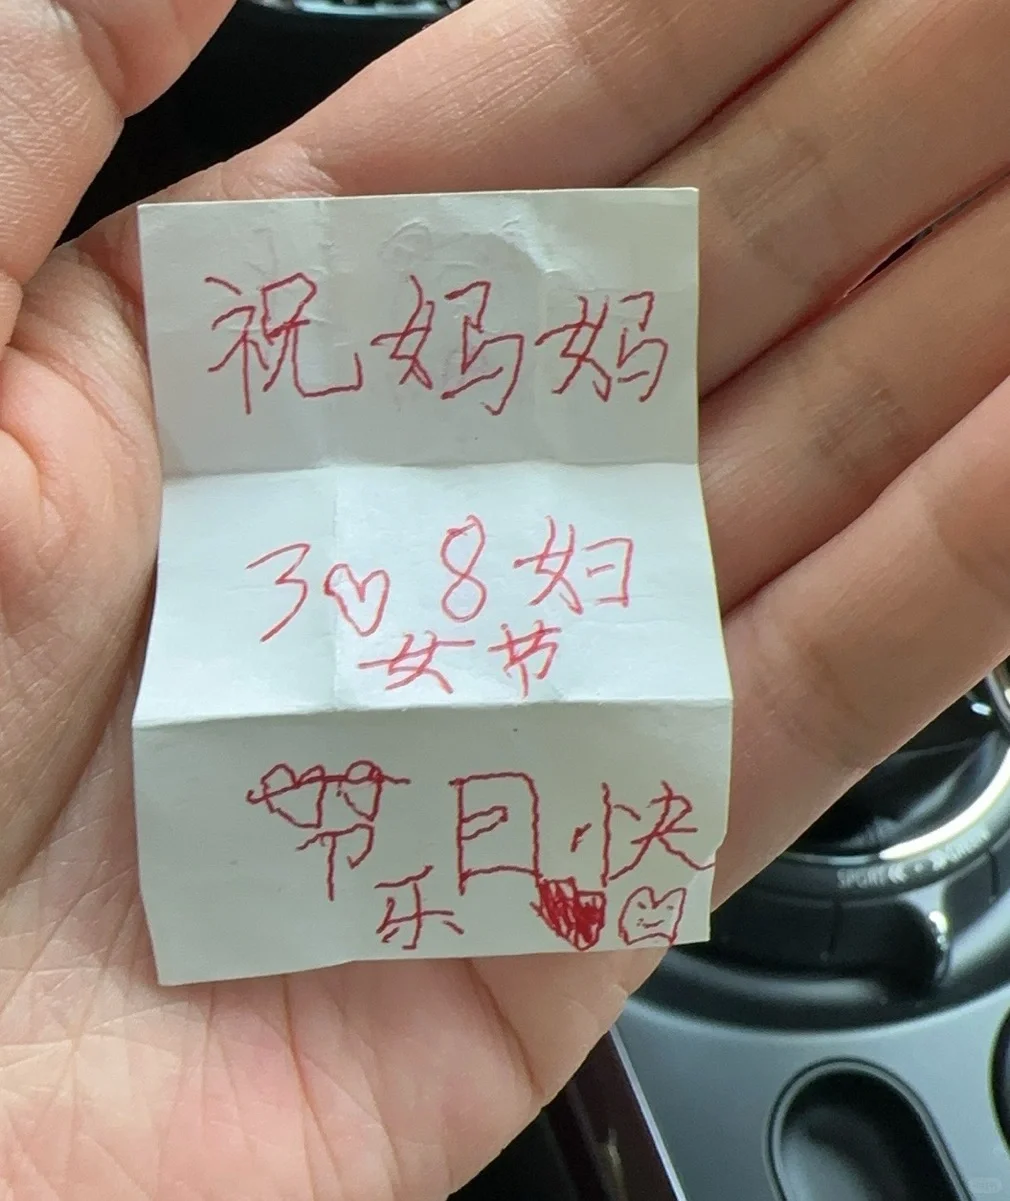 祝妈妈
3♡8妇
女节
节日快
乐
SPORT